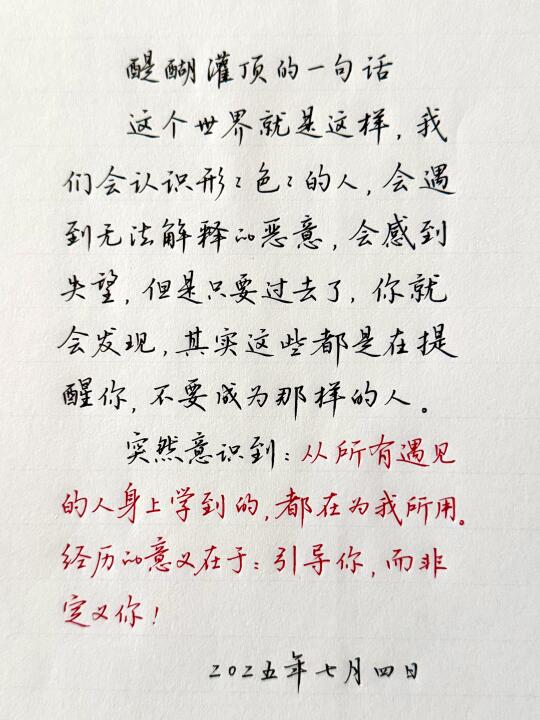 醍醐灌顶的一句话
这个世界就是这样，我
们会认识形〻色〻的人，会遇
到无法解释的恶意，会感到
失望，但是只要过去了，你就
会发现，其实这些都是在提
醒你，不要成为那样的人。
突然意识到：从所有遇见
的人身上学到的，都在为我所用。
经历的意义在于：引导你，而非
定义你！
2025年七月四日